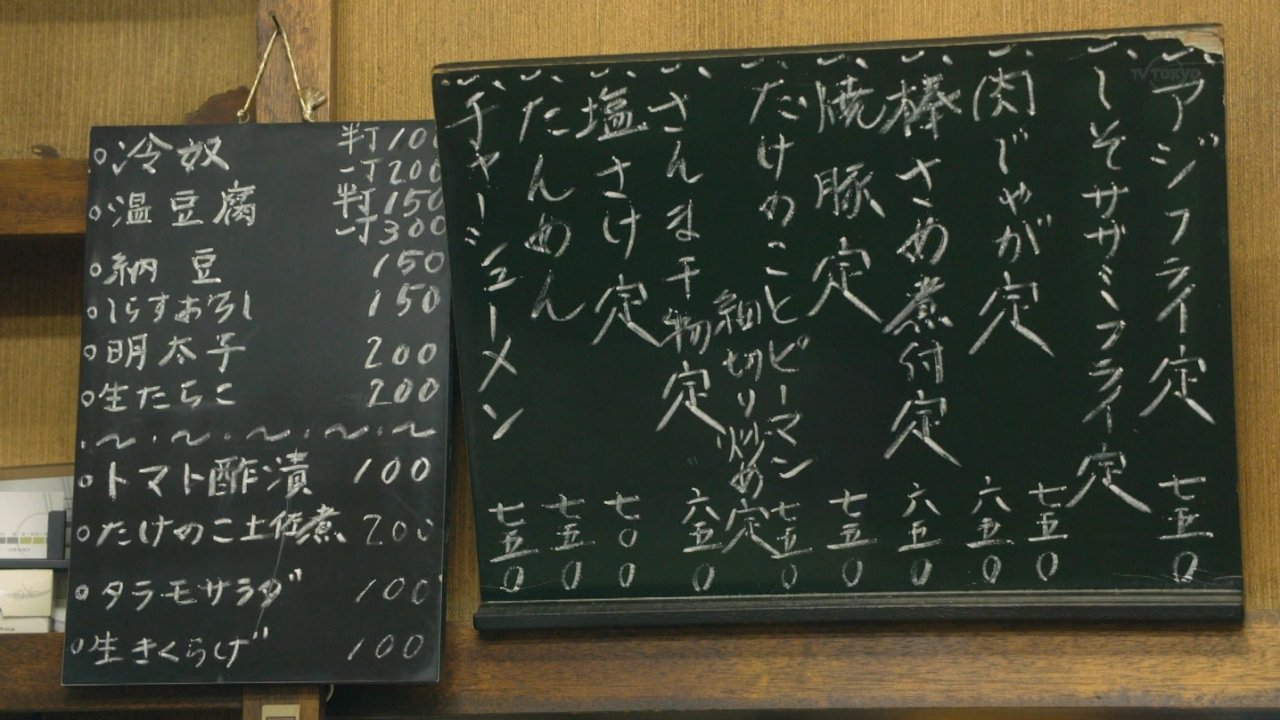 冷奴 半丁 100
一丁 200
温豆腐 半丁 150
一丁 300
納豆 150
しらすおろし 150
明太子 200
生たらこ 200
トマト酢漬 100
たけのこ土佐煮 200
タラモサラダ 100
生きくらげ 100
一、アジフライ定 七五0
一、しそササミフライ定 七五0
一、肉じゃが定 六五0
一、棒さめ煮付定 六五0
一、焼豚定 七五0
一、たけのことピーマン
細切り炒め定 七五0
一、さんま干物定 六五0
一、塩さけ定 七00
一、たんめん 七五0
一、チャーシューメン 七五0
TV TOKYO